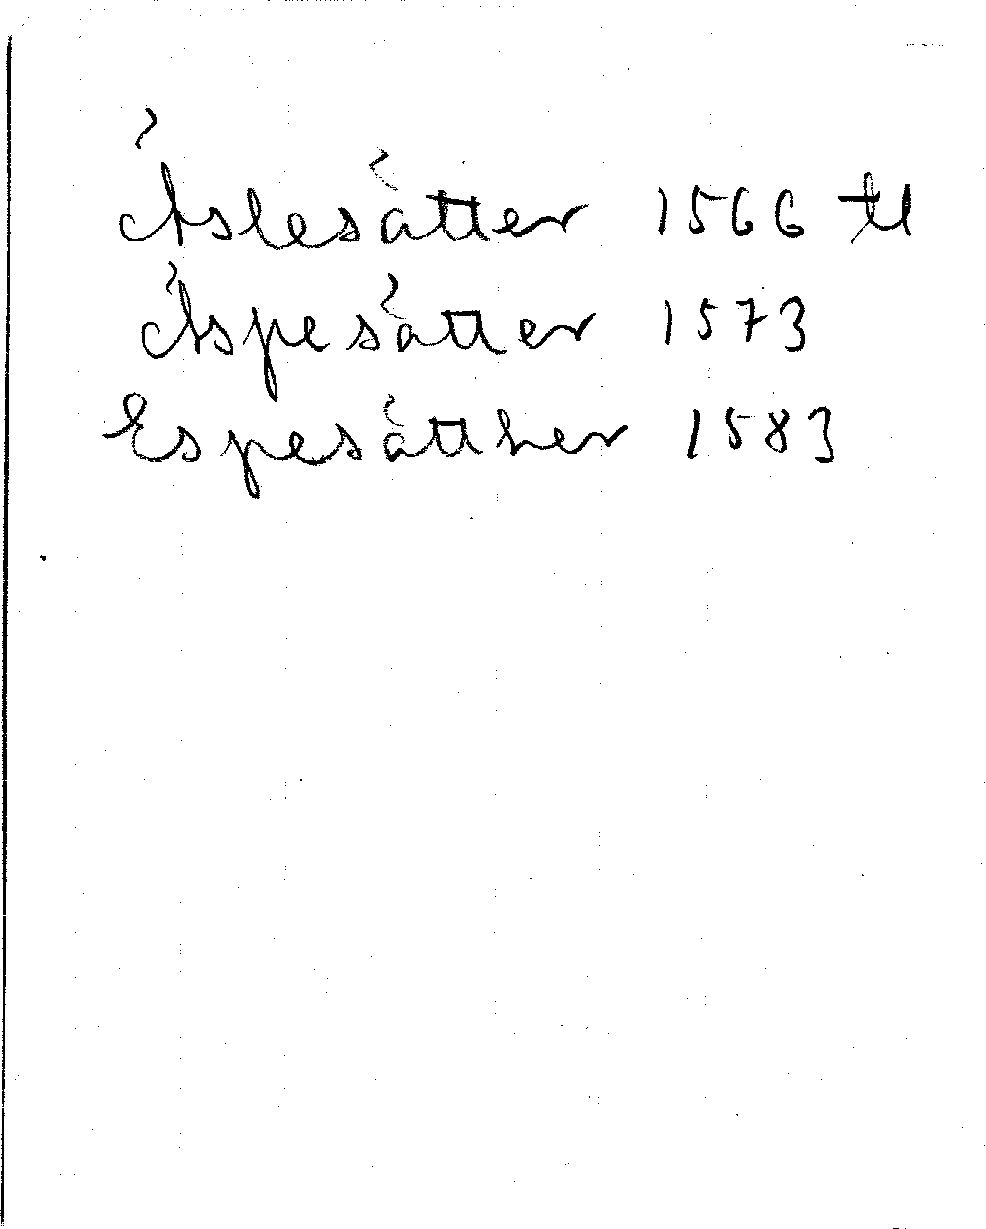 Äslesätter 1566 tl
Äspesätter 1573
Espesätther 1583